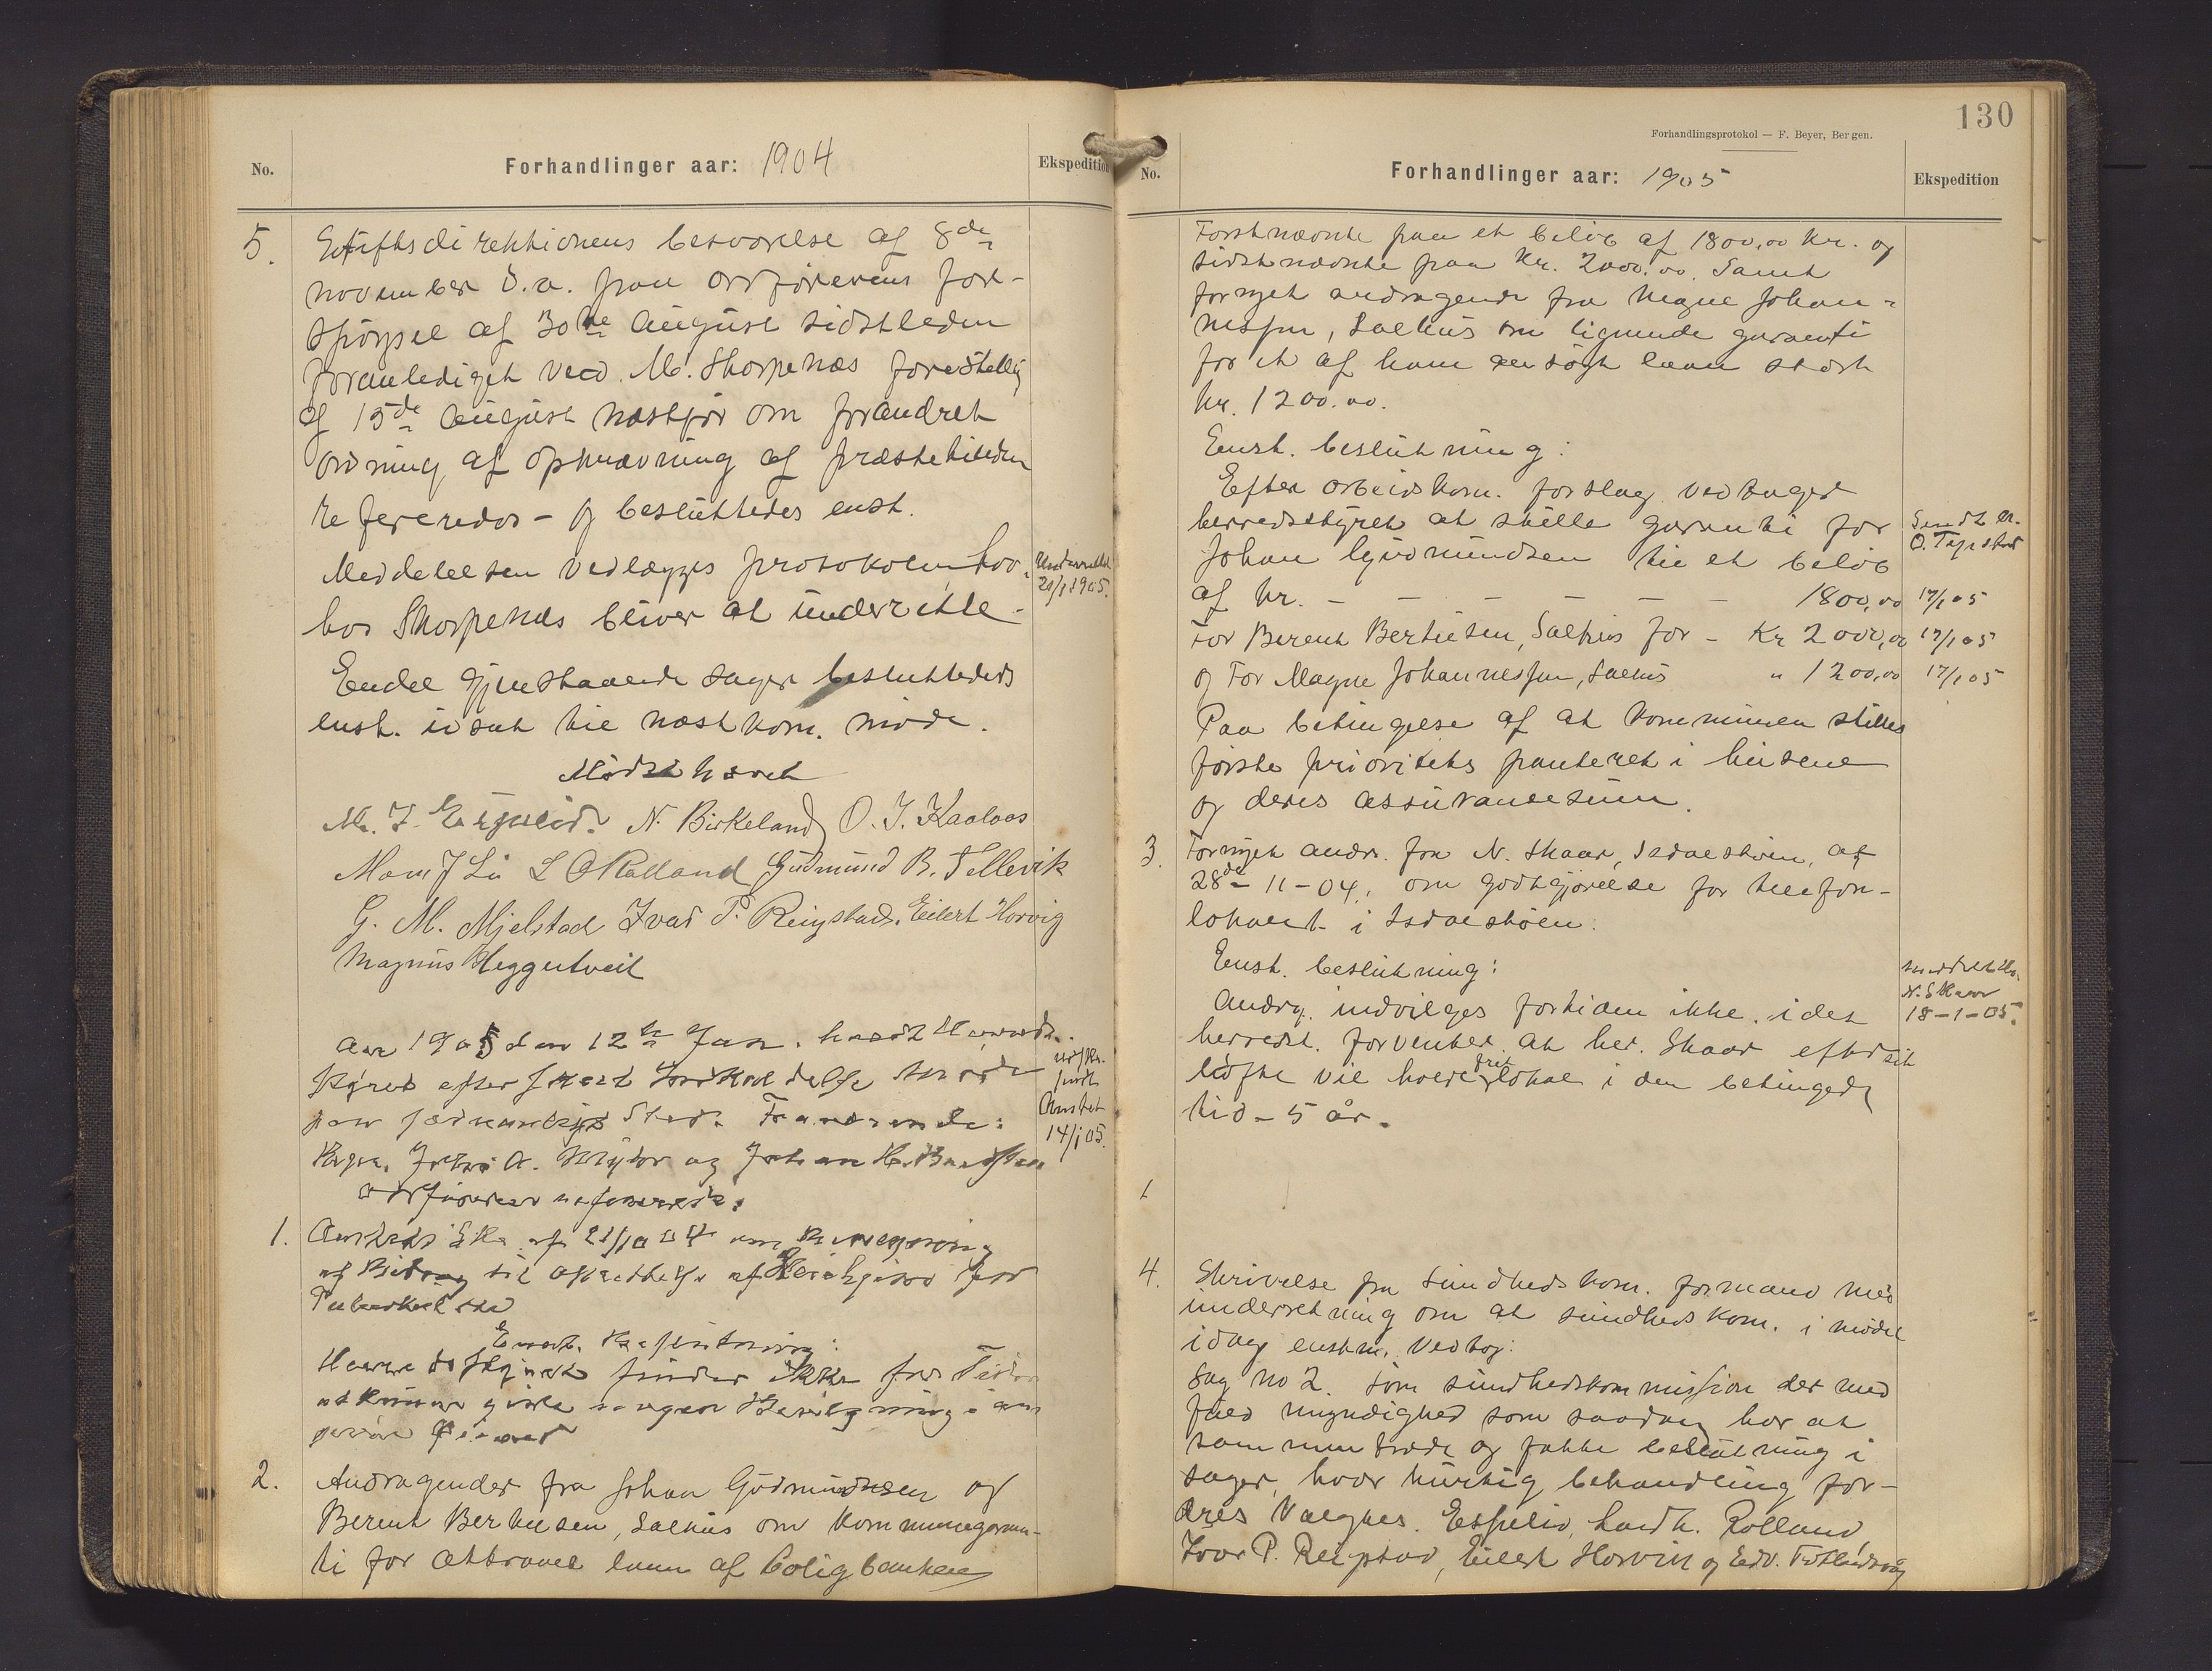 No.
Forhandlinger aar: 1904
Ekspedition
5.
Stiftsdirektionens besvarelse af 8de
november d.a. paa ordførerens fore-
spørgsel af 30te august sidstleden
foranlediget ved M. Skorpenæs forestilling
af 15de august næstfør om forandret
ordning af opkrævning af præstetienden
refereredes – og besluttedes enst.
Meddelelsen vedlægges protokolen, hvor-
hos Skorpenæs bliver at underrette.
Underrettet
21/1 1905.
Endel gjenstaaende sager besluttedes
enst. udsat til næstkom. møde.
Mødet hævet
M. J. Eizneid. N. Birkeland O. J. Kaalaas
Mons J Li L O Rølland Gudmund B. Tellevik
G. M. Mjelstad Ivar P. Reigstad. Eilert Horvig
Magnus Heggertveit
Aar 1905 den 12te Jan. holdt Herreds-
styret efter skeet Indkaldelse møde
paa sædvanligt Sted. Fraværende:
Johan A. og Johan H.
ordføreren refererede:
Amtet
14/1 05.
1.
Amtets Skr. af 21/10 04 om Bevilgning
af Bidrag til Oprettelse af Pleiehjem for
Tuberkuløse
Enst. Beslutning:
Herredsstyret finder ikke for Tiden
at kunne give nogen Bevilgning i
2.
Andragender fra Johan Gudmundsen og
Berent Bertelsen, Salhus om kommunegaran-
ti for attraaet laan af Boligbanken
130
Forhandlingsprotokol — F. Beyer, Bergen.
No.
Forhandlinger aar: 1905
Ekspedition
Førstnævnte paa et beløb af 1800,00 Kr. og
sidstnævnte paa Kr. 2000.00. Samt
fornyet andragende fra Magne Johan-
nessen, Salhus om lignende garanti
for et af ham ansøgt laan stort
kr. 1200.00.
Enst. beslutning:
Efter arbeidskom. forslag vedtager
herredsstyret at stille garanti for
Johan Gudmundsen til et beløb
af kr. – – – – – – 1800,00
Sendt
17/1 05
For Berent Bertelsen, Salhus for – Kr 2000,00
17/1 05
og For Magne Johannessen, Salhus " 1200,00
17/1 05
Paa betingelse af at kommunen stilles
første prioritets panteret i husene
og deres assurancesum.
3.
Fornyet andr. fra N. Skaar, Isdalstøen, af
28de – 11 – 04, om godtgjørelse for telefon-
lokalet i Isdalstøen.
Enst. beslutning:
Andrg. indvilges fortiden ikke, idet
herredst. forventer at her. Skaar efter sit
løfte vil holde frit lokal i den betingede
tid – 5 år.
meddelt Hr.
N. Skaar
18-1-05.
4.
Skrivelse fra Sundhedskom. formand med
underretning om at sundhedskom. i møde
idag enstm. vedtog:
Sag no 2. Som sundhedskommission der med
fuld myndighed som saadan har at
sammentræde og fatte beslutning i
sager, hvor hurtig behandling for-
dres valgtes. Espelid, landh. Rølland
Ivar P. Reigstad, Eilert Horvik og Edv.